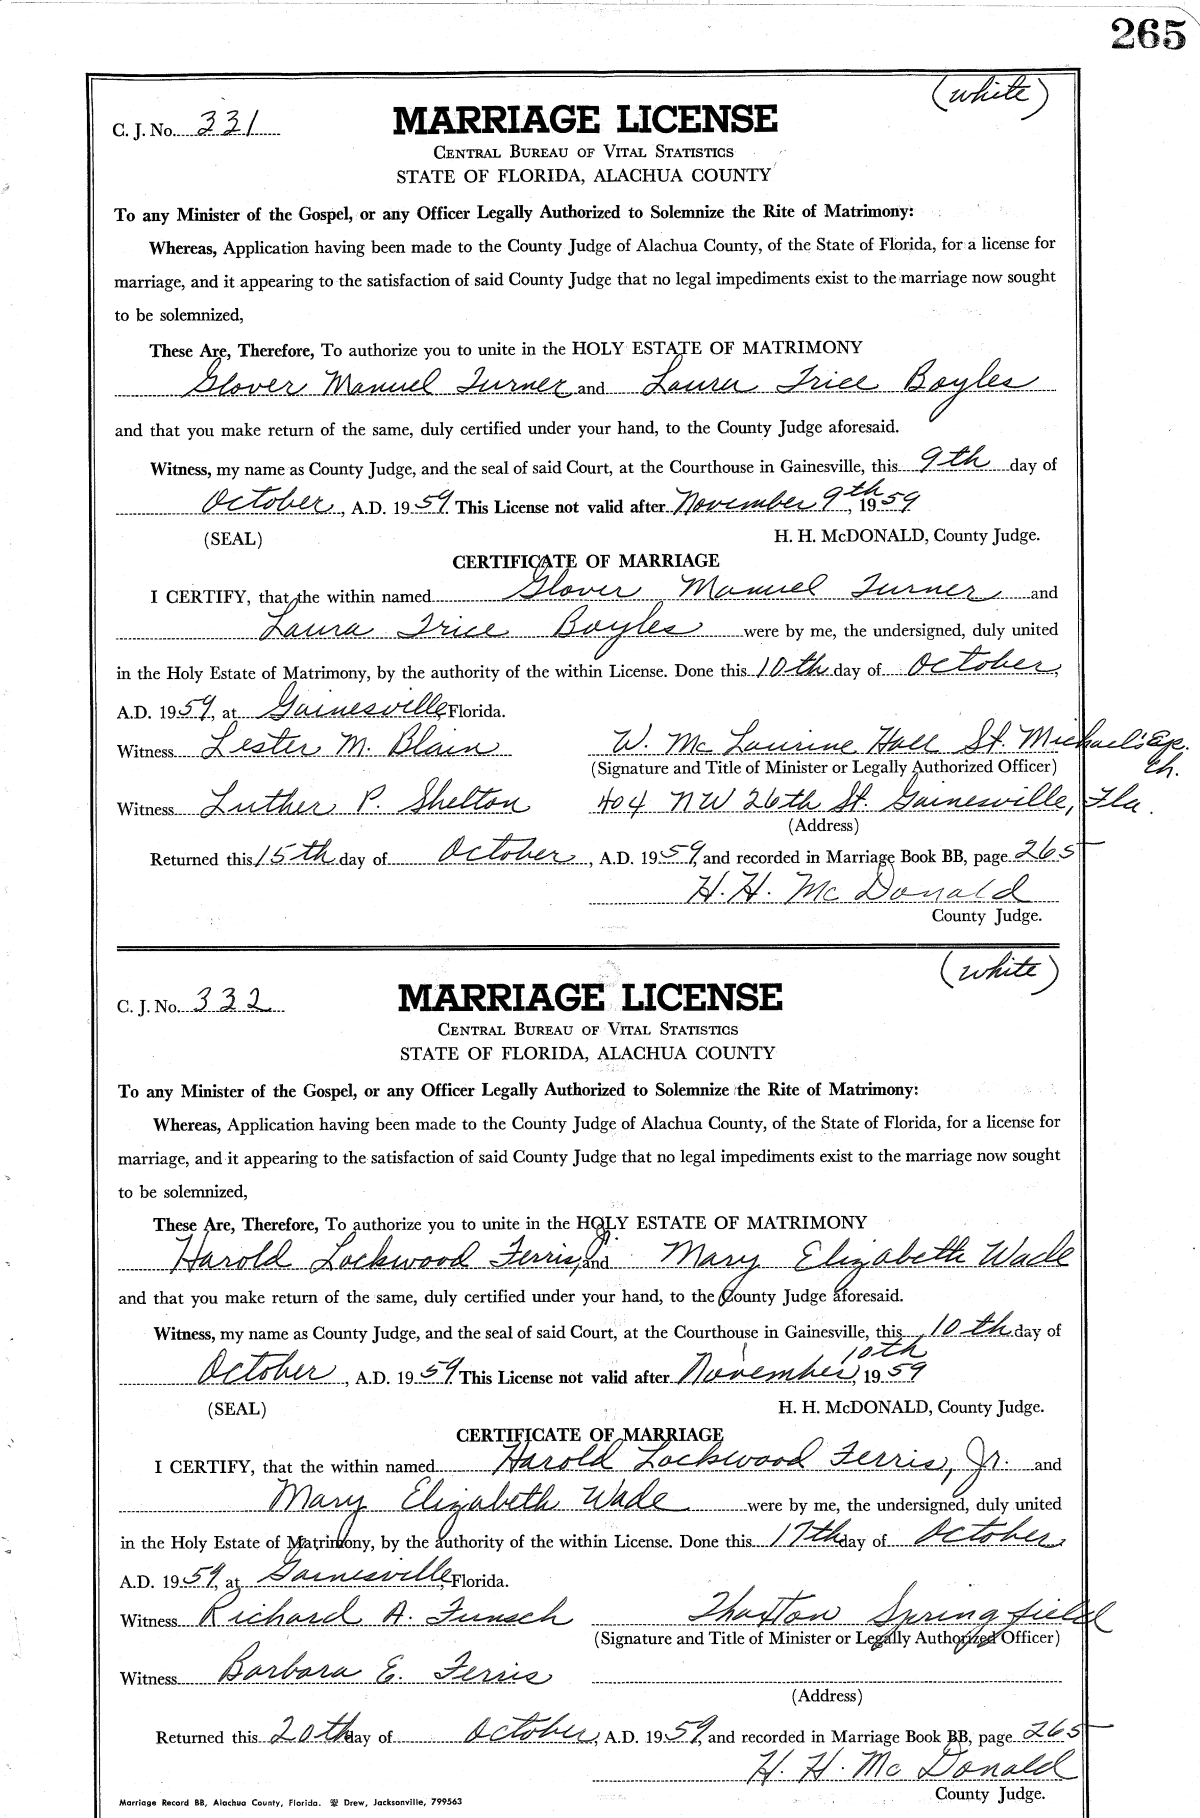 265
(white)
C. J. No. 331
MARRIAGE LICENSE
CENTRAL BUREAU OF VITAL STATISTICS
STATE OF FLORIDA, ALACHUA COUNTY
To any Minister of the Gospel, or any Officer Legally Authorized to Solemnize the Rite of Matrimony:
Whereas, Application having been made to the County Judge of Alachua County, of the State of Florida, for a license for
marriage, and it appearing to the satisfaction of said County Judge that no legal impediments exist to the marriage now sought
to be solemnized,
These Are, Therefore, To authorize you to unite in the HOLY ESTATE OF MATRIMONY
Glover Manuel Turner and Laura Trice Boyles
and that you make return of the same, duly certified under your hand, to the County Judge aforesaid.
Witness, my name as County Judge, and the seal of said Court, at the Courthouse in Gainesville, this 9th day of
October, A.D. 1959. This License not valid after November 9th, 1959
(SEAL) H. H. McDONALD, County Judge.
CERTIFICATE OF MARRIAGE
I CERTIFY, that the within named Glover Manuel Turner and
Laura Trice Boyles were by me, the undersigned, duly united
in the Holy Estate of Matrimony, by the authority of the within License. Done this 10th day of October,
A.D. 1959, at Gainesville, Florida.
Witness Lester M. Blain W. McLaurine Hall St. Michael's Epc. Ch.
(Signature and Title of Minister or Legally Authorized Officer)
Witness Luther P. Shelton 404 NW 26th St. Gainesville, Fla.
(Address)
Returned this 15th day of October, A.D. 1959, and recorded in Marriage Book BB, page 265
H. H. McDonald
County Judge.
(white)
C. J. No. 332
MARRIAGE LICENSE
CENTRAL BUREAU OF VITAL STATISTICS
STATE OF FLORIDA, ALACHUA COUNTY
To any Minister of the Gospel, or any Officer Legally Authorized to Solemnize the Rite of Matrimony:
Whereas, Application having been made to the County Judge of Alachua County, of the State of Florida, for a license for
marriage, and it appearing to the satisfaction of said County Judge that no legal impediments exist to the marriage now sought
to be solemnized,
These Are, Therefore, To authorize you to unite in the HOLY ESTATE OF MATRIMONY
Harold Lockwood Ferris, Jr. and Mary Elizabeth Wade
and that you make return of the same, duly certified under your hand, to the County Judge aforesaid.
Witness, my name as County Judge, and the seal of said Court, at the Courthouse in Gainesville, this 10th day of
October, A.D. 1959. This License not valid after November 10th, 1959
(SEAL) H. H. McDONALD, County Judge.
CERTIFICATE OF MARRIAGE
I CERTIFY, that the within named Harold Lockwood Ferris, Jr. and
Mary Elizabeth Wade were by me, the undersigned, duly united
in the Holy Estate of Matrimony, by the authority of the within License. Done this 17th day of October,
A.D. 1959, at Gainesville, Florida.
Witness Richard A. Funsch Thaxton Springfield
(Signature and Title of Minister or Legally Authorized Officer)
Witness Barbara E. Ferris
(Address)
Returned this 20th day of October, A.D. 1959, and recorded in Marriage Book BB, page 265
H. H. McDonald
County Judge.
Marriage Record BB, Alachua County, Florida. Drew, Jacksonville, 799563